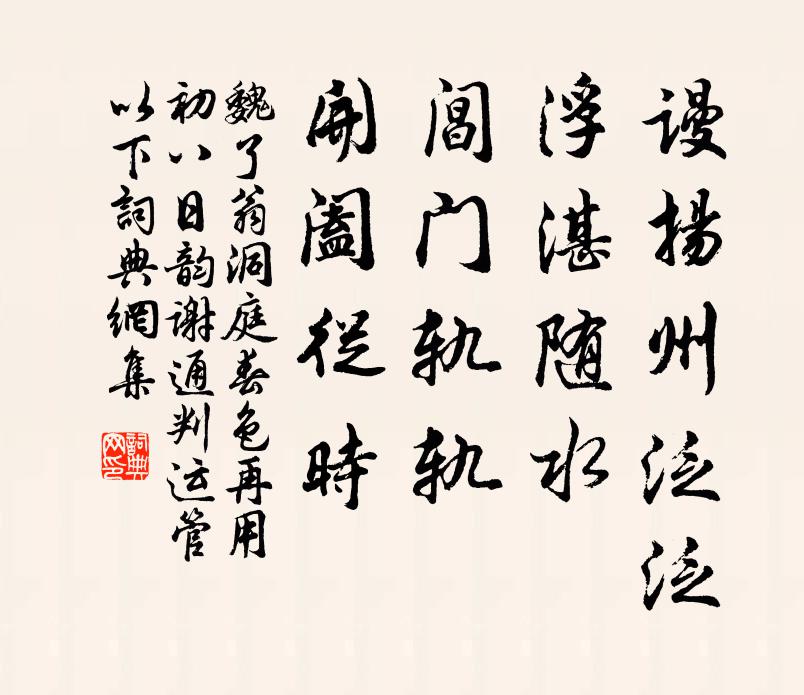 谩揚州泛泛
浮湛随水
閶门轨轨
開闔從時
魏了翁洞庭春色再用
初八日韵谢通判运管
以下詞典網集
詞典网印